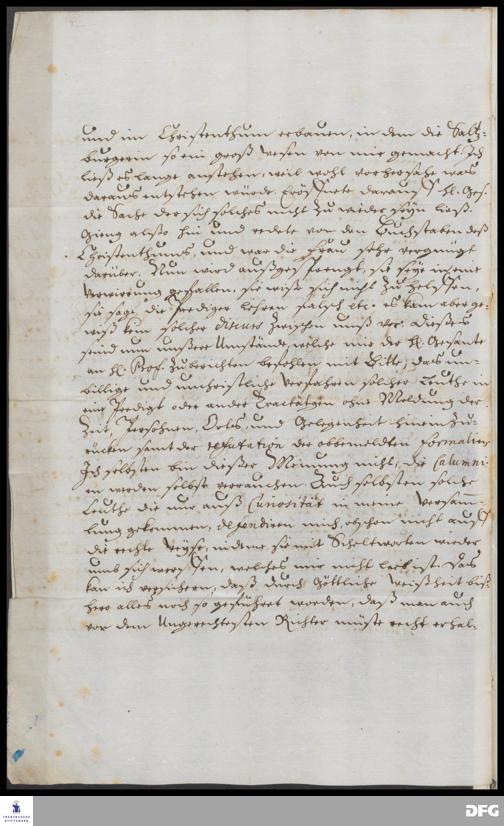 und im Christenthum erbauen, in dem die Saltz-
burgerin so ein groß wesen von mir gemacht. Ich
ließ es lange anstehen, weil wohl vorhersahe was
daraus entstehen würde. Eröffnete darauff H. Ges.
die Sache der sich solches nicht zu wieder seyn ließ.
Gieng also hin und redete von den Buchstaben deß
Christenthums, und war die Frau sehr vergnügt
darüber. Nun wird außgesprengt, sie seye in eine
Verwirrung gefallen, sie wiße sich nicht zu helffen,
sie sage die Prediger lehren falsch etc. es kam aber ge-
wiß kein solcher discurs zwischen unß vor. Dieses
seind nun unßere Umstände, welche mir der H. Gesante
an H. Prof. zu berichten befohlen, mit Bitte, das un-
billige und unchristliche Verfahren solcher Leuthe in
eine Predigt oder andere Tractätgen ohne Meldung der
Zeit, Persohnen, Orts, und Gelegenheit hinein zu-
rücken samt der refutation der obbemeldten formalien
Ich selbsten bin dießer Meinung nicht, die Calumni-
en werden selbst verrauchen. Auch selbsten solche
Leuthe die nur auß Curiosität in meine Versamm-
lung gekommen, defendiren mich, obschon nicht auff
die rechte Weyse, indeme sie mit Scheltworten wieder
umb sich werffen, welches mir nicht lieb ist. Das
kan ich versichern, daß durch Göttliche Weißheit biß-
hero alles noch so geführet worden, daß man auch
vor dem Ungerechtesten Richter müste recht erhal-
FRANCKESCHE
STIFTUNGEN
DFG